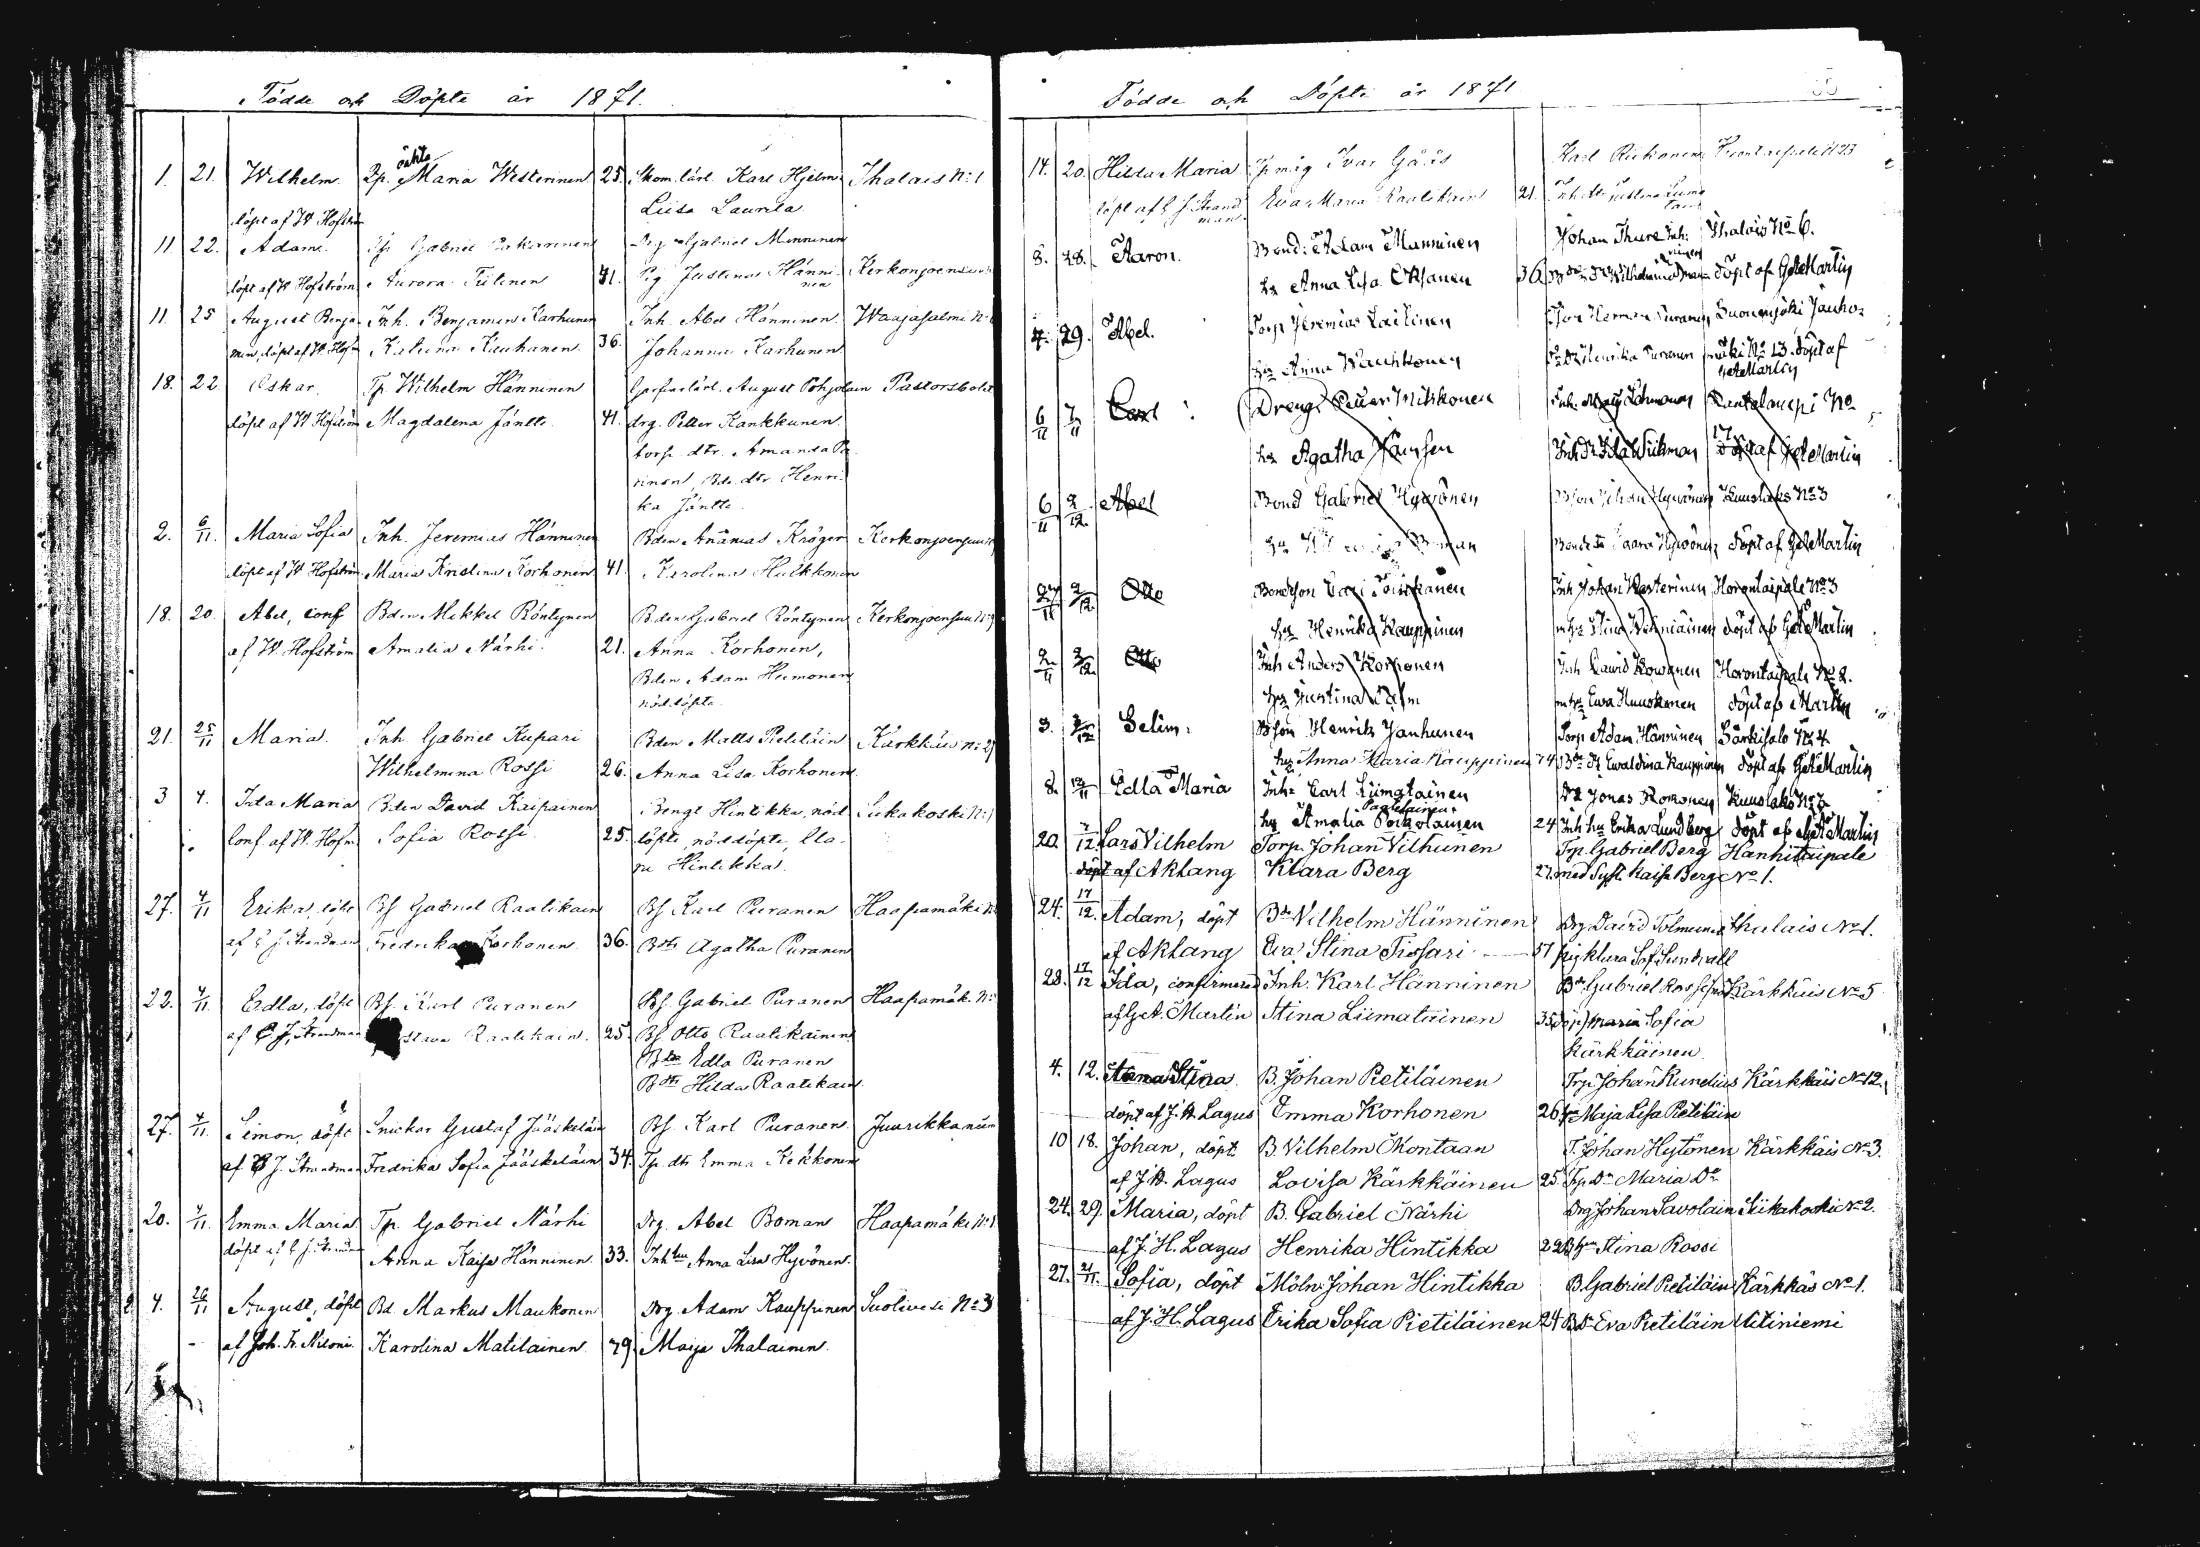 Födde och Döpte år 1871.
1. 21. Wilhelm. Pp. oäkta Maria Westerinen 25. Skom. lärl. Karl Hjelm Ihalais N:1
döpt af W Hofström Liisa Laurila.
11 22. Adam. Gabriel Drg Gabriel Minninen
döpt af W Hofström Aurora Tiitinen 41. Pg Justina Hänninen Kerkonjoensuu
11 25 August Benja- Inh. Benjamin Karhunen Inh. Abel Hänninen Waajasalmi N:
min, döpt af W. Hofm Katrina Kauhanen. 36. Johanna Karhunen
18. 22 Oskar Tp. Wilhelm Hänninen Garfvarlärl. August Pohjolain Pastorsbolet
döpt af W Hofström Magdalena Jäntti. 41. drg. Petter Kankkunen
torp. dtr. Amanda Pu-
rinen, Bde. dtr Henri-
ka Jäntti.
2. 6/11. Maria Sofia Inh. Jeremias Hänninen Bden Ananias Kröger Kerkonjoensuu
döpt af W Hofström Maria Kristina Korhonen 41. Karolina Hulkkonen
18. 20. Abel, conf Bden Mikkel Röntynen Bden Gabriel Röntynen Kerkonjoensuu N:9
af W. Hofström Amalia Närhi. 21. Anna Korhonen,
Bden Adam Heimonen
nöddöpte.
21. 25/11 Maria. Inh. Gabriel Kupari Bden Matts Pietiläin Kärkkäis N:2
Wilhelmina Rossi 26. Anna Lisa Korhonen.
3 4. Ida Maria Bden David Kaipainen Bengt Hintikka, nöd Siikakoski N:1
Conf. af W. Hofm Sofia Rossi. 25. döpte, nöddöpte, Ulla-
na Hintikka.
27. 4/11 Erika, döpt Bs Gabriel Raatikain Bs Karl Puranen Haapamäki N:
af C J. Strandman Fredrika Korhonen. 36. Bdtr Agatha Puranen
22. 4/11. Edla, döpt Bs. Karl Puranen Bs. Gabriel Puranen Haapamäk. N:
af C J. Strandman Raatikain. 25. Bs Otto Raatikainen
Bdtr Edla Puranen
Bdtr Hilda Raatikain
27. 4/11. Simon, döpt Snickar Gustaf Jääskeläin Bs. Karl Puranen Juurikkaniem
af C J. Strandman Fredrika Sofia Jääskeläin 34. Tp. dtr Emma Kekkonen
20. 4/11. Emma Maria Tp. Gabriel Närhi Drg. Abel Boman Haapamäki N:1
döpt af C J. Strandm Anna Kaisa Hänninen. 33. Inh hu Anna Lisa Hyvönen.
4. 26/11 August, döpt Bd. Markus Maukonen Drg. Adam Kauppinen Suolivesi No 3
af Joh. Fr. Niloni. Karolina Matilainen 29. Maija Ihalainen.
Födde och Döpte år 1871
14. 20. Hilda Maria Ivar Gåås Karl Riekonen
döpt af C J. Strand- Eva Maria Raatikain 21.
man
8. 28. Aaron. Bond: Adam Manninen Johan Thure Inh: Ihalais No 6.
hu Anna Lisa Oksanen 36 Wilhelmina döpt af Get Martin
4. 29. Abel. Torp Jeremias Laitinen Herman Puranen Suonenjoki Jauho-
hu Anna Wauhkonen Henrika Puranen mäki No 13. döpt af
Get Martin
6/11 7/11 Carl Dreng Petter Miskonen Inh. Lehmonen Rantalampi No
hu Agatha Jamsen Inh Dr Ida Wiikman 17 döpt af Get Martin
6/11 2/12. Abel Bond Gabriel Hyvönen Bson Johan Hyvönen Kuuslaks No 3
Boman Bonde Dr Saara Hyvönen döpt af Get Martin
2/12. Otto Bondson Carl Toiskanen Inh Johan Westerinen Horontaipale No 3
hu Henrika Kauppinen m hu Stina döpt af Get Martin
2/11 2/12. Otto Inh Anders Korhonen Inh David Kowanen Horontaipale No 2.
hu Justina Malm m hu Ewa Kuuskonen döpt af Martin
3. Selim. Bson Henrik Janhunen Torp Adam Hänninen Särkisalo No 4
hu Anna Maria Kauppinen Bde Dr Ewaldina Kauppinen döpt af Get Martin
8. Edla Maria Inh: Carl Liimatainen Dr Jonas Kokonen Kuuslaks No 7
Paatelainen
hu Amalia Poikolainen 24 Inh hu Erika Lundberg döpt af Get Martin
20. 7/12. Lars Vilhelm Torp. Johan Vilhunen Trp. Gabriel Berg Hankitaipale
döpt af Aktang Klara Berg 27. med Syst. Kaisa Berg No 1.
24. 17/12. Adam, döpt Bde Vilhelm Hänninen Drg David Tolmunen Ihalais No 1.
af Aktang Eva Stina Tissari 51 pig Klara Sof. Sundvall
28. 17/12 Ida, confirmerad Inh. Karl Hänninen Bde Gabriel Rossi Kärkkäis No 5
af Get. Martin Stina Liimatainen 35 Maria Sofia
Kärkkäinen.
4. 12. Anna Stina. B. Johan Pietiläinen Trp. Johan Runelius Kärkkäis No 12.
döpt af J. H. Lagus Emma Korhonen 26 Maja Lisa Pietiläin
10 18. Johan, döpt B. Vilhelm Montaan T. Johan Hytönen Kärkkäis No 3.
af J. H. Lagus Lovisa Kärkkäinen 25. Trp. Dr Maria Do
24. 29. Maria, döpt B. Gabriel Närhi Drg Johan Savolain Siikakoski No 2.
af J. H. Lagus Henrika Hintikka 22 Stina Rossi
27. 2/11. Sofia, döpt Möln. Johan Hintikka B. Gabriel Pietiläin Kärkkäs No 1.
af J. H. Lagus Erika Sofia Pietiläinen 24 B Dr Eva Pietiläin Vitiniemi